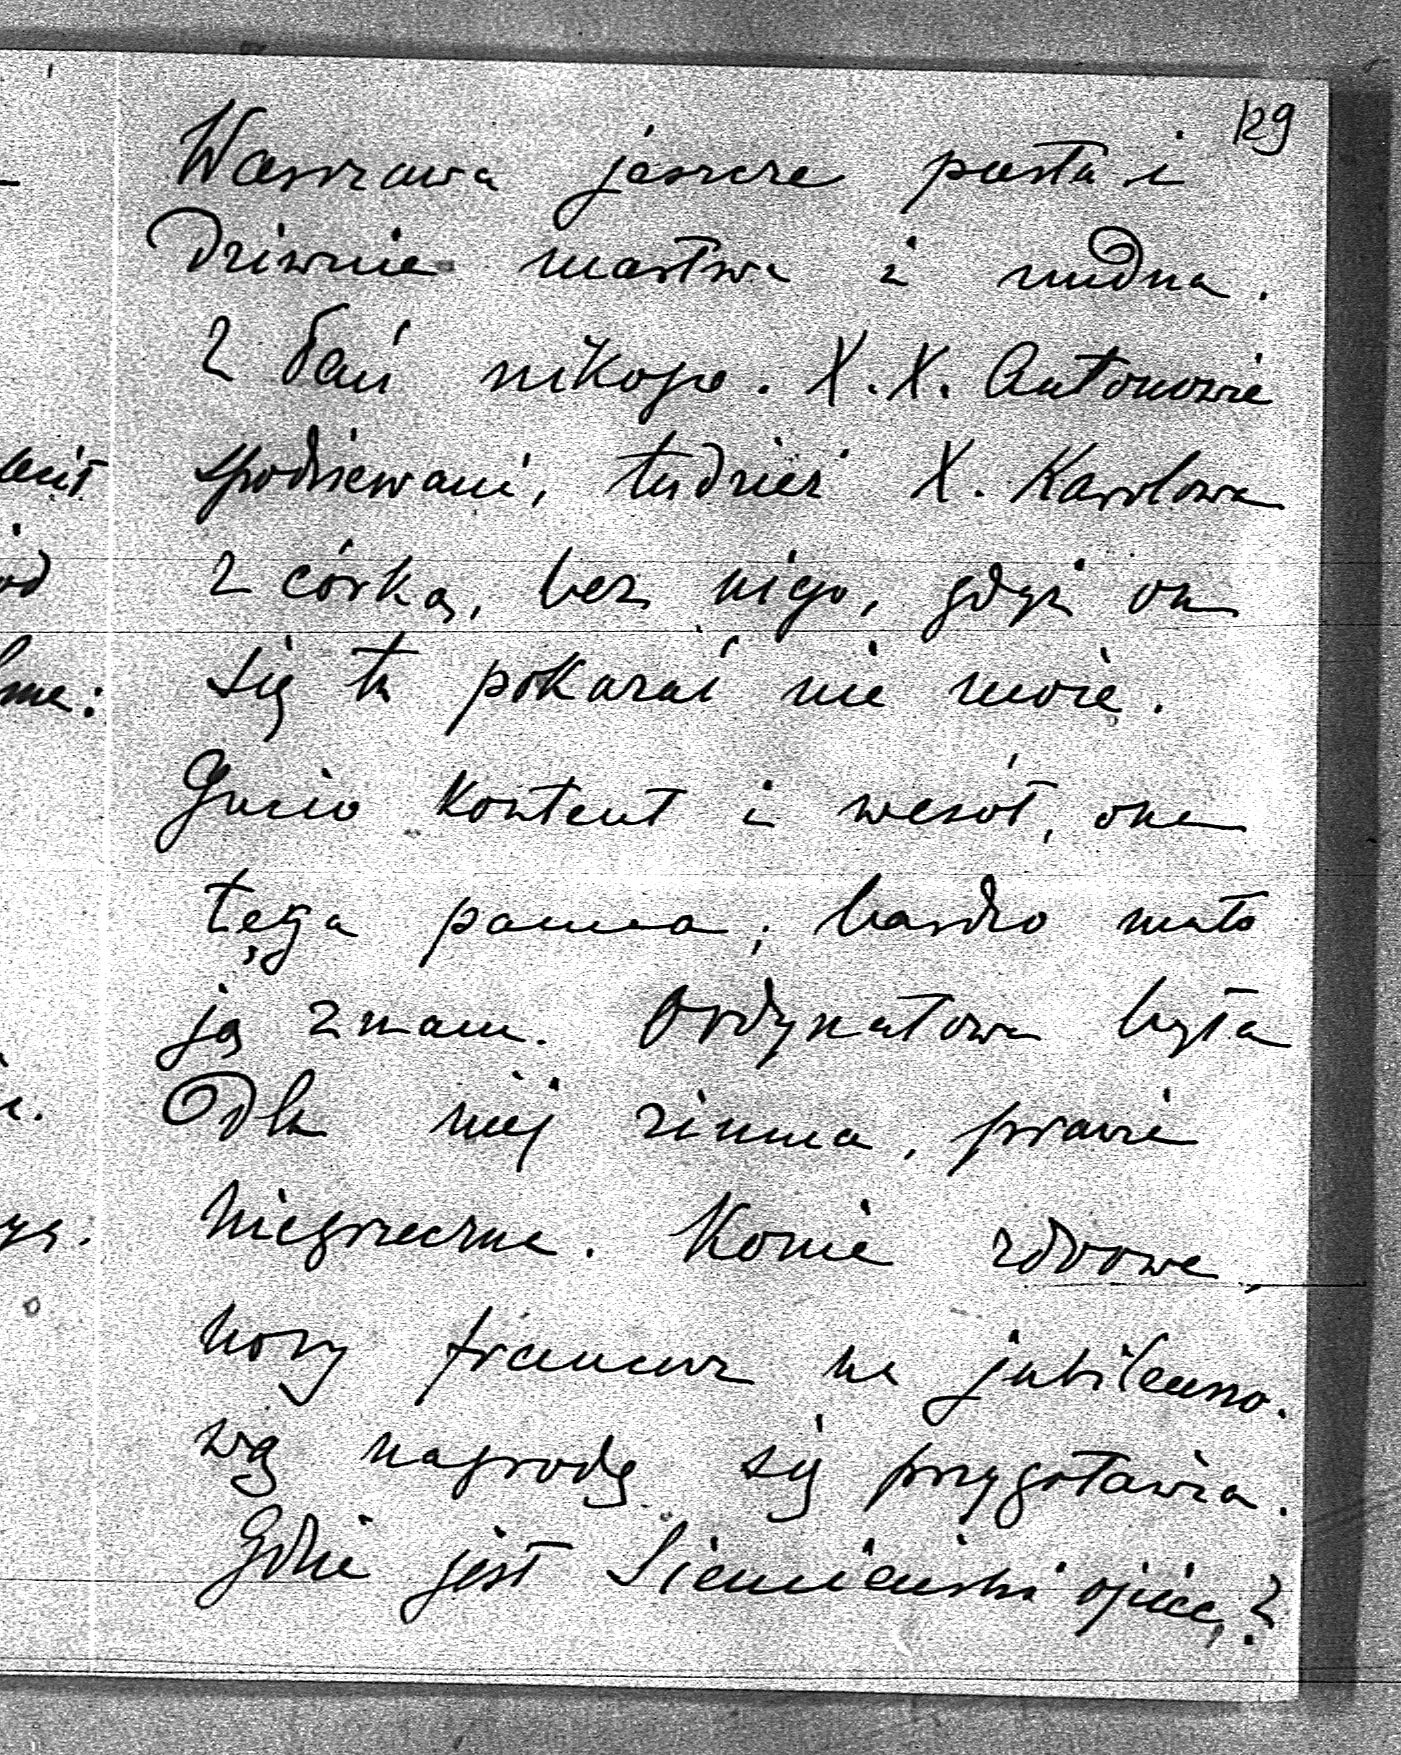 129
Warszawa jeszcze pusta i
dziwnie martwa i nudna.
Z Pań nikogo. X.X. Antonowie
spodziewani, tudzież X. Karolowa
z córką, bez niego, gdyż on
się tu pokazać nie może.
Gucio kontent i wesół, ona
tęga panna; bardzo mało
ją znam. Ordynatowa była
dla niej zimna, prawie
niegrzeczna. Konie zdrowe,
nowy na jubileuszo.
wą nagrodę się przygotawia.
Gdzie jest Siemieński ojciec?